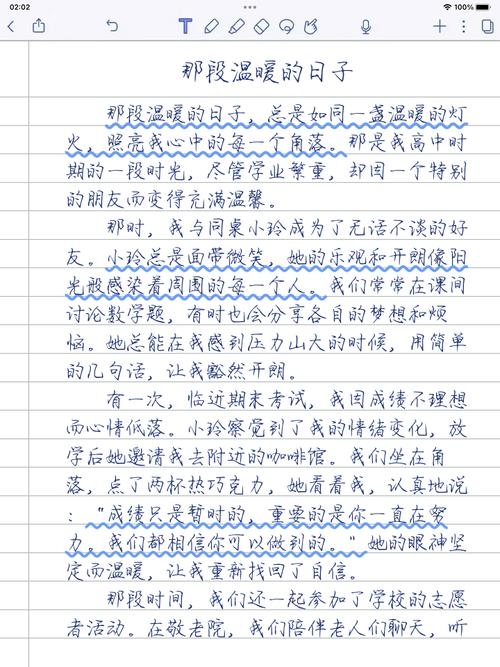 02:02
100%
那段温暖的日子
那段温暖的日子，总是如同一盏温暖的灯
火，照亮我心中的每一个角落。那是我高中时
期的一段时光，尽管学业繁重，却因一个特别
的朋友而变得充满温馨。
那时，我与同桌小玲成为了无话不谈的好
友。小玲总是面带微笑，她的乐观和开朗像阳
光般感染着周围的每一个人。我们常常在课间
讨论数学题，有时也会分享各自的梦想和烦
恼。她总能在我感到压力山大的时候，用简单
的几句话，让我豁然开朗。
有一次，临近期末考试，我因成绩不理想
而心情低落。小玲察觉到了我的情绪变化，放
学后她邀请我去附近的咖啡馆。我们坐在角
落，点了两杯热巧克力，她看着我，认真地说
：“成绩只是暂时的，重要的是你一直在努
力。我们都相信你可以做到的。”她的眼神坚
定而温暖，让我重新找回了自信。
那段时间，我们还一起参加了学校的志愿
者活动。在敬老院，我们陪伴老人们聊天，听